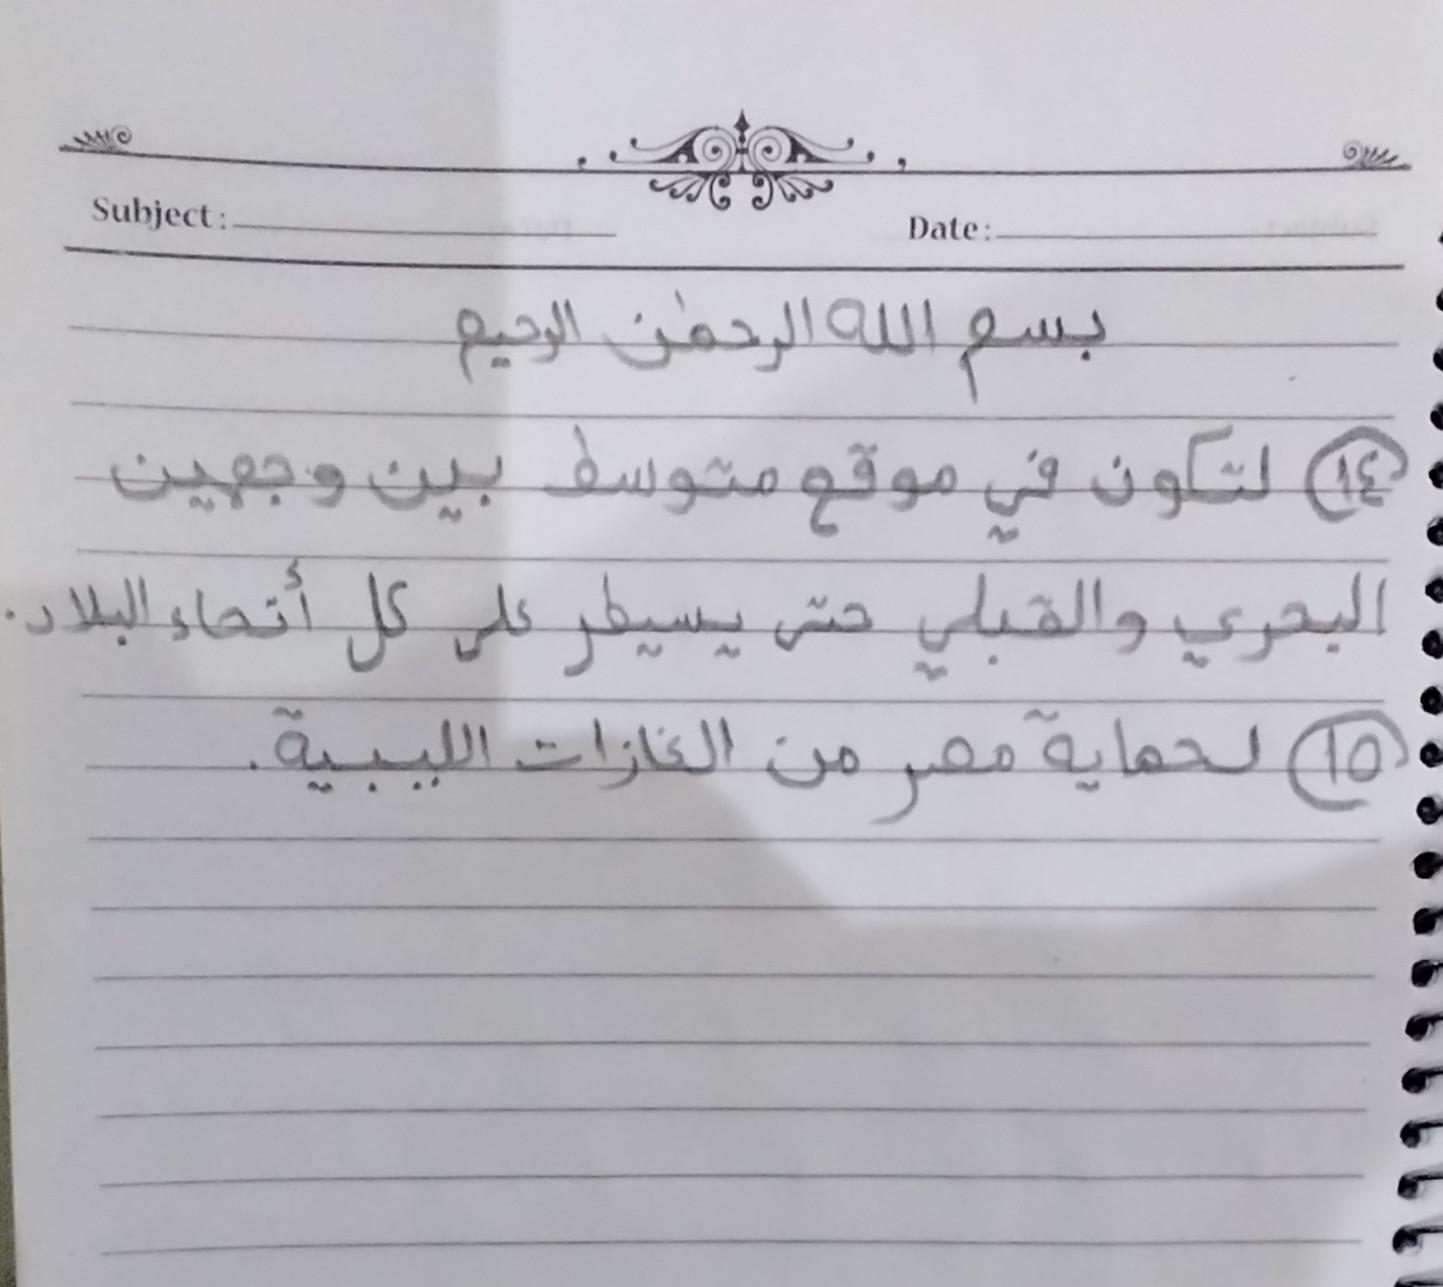 Subject: Date:
بسم الله الرحمٰن الرحيم
١٤ لتكون في موقع متوسط بين وجهين
البحري والقبلي حتى يسيطر على كل أنحاء البلاد.
١٥ لحماية مصر من الغازات الليبية.